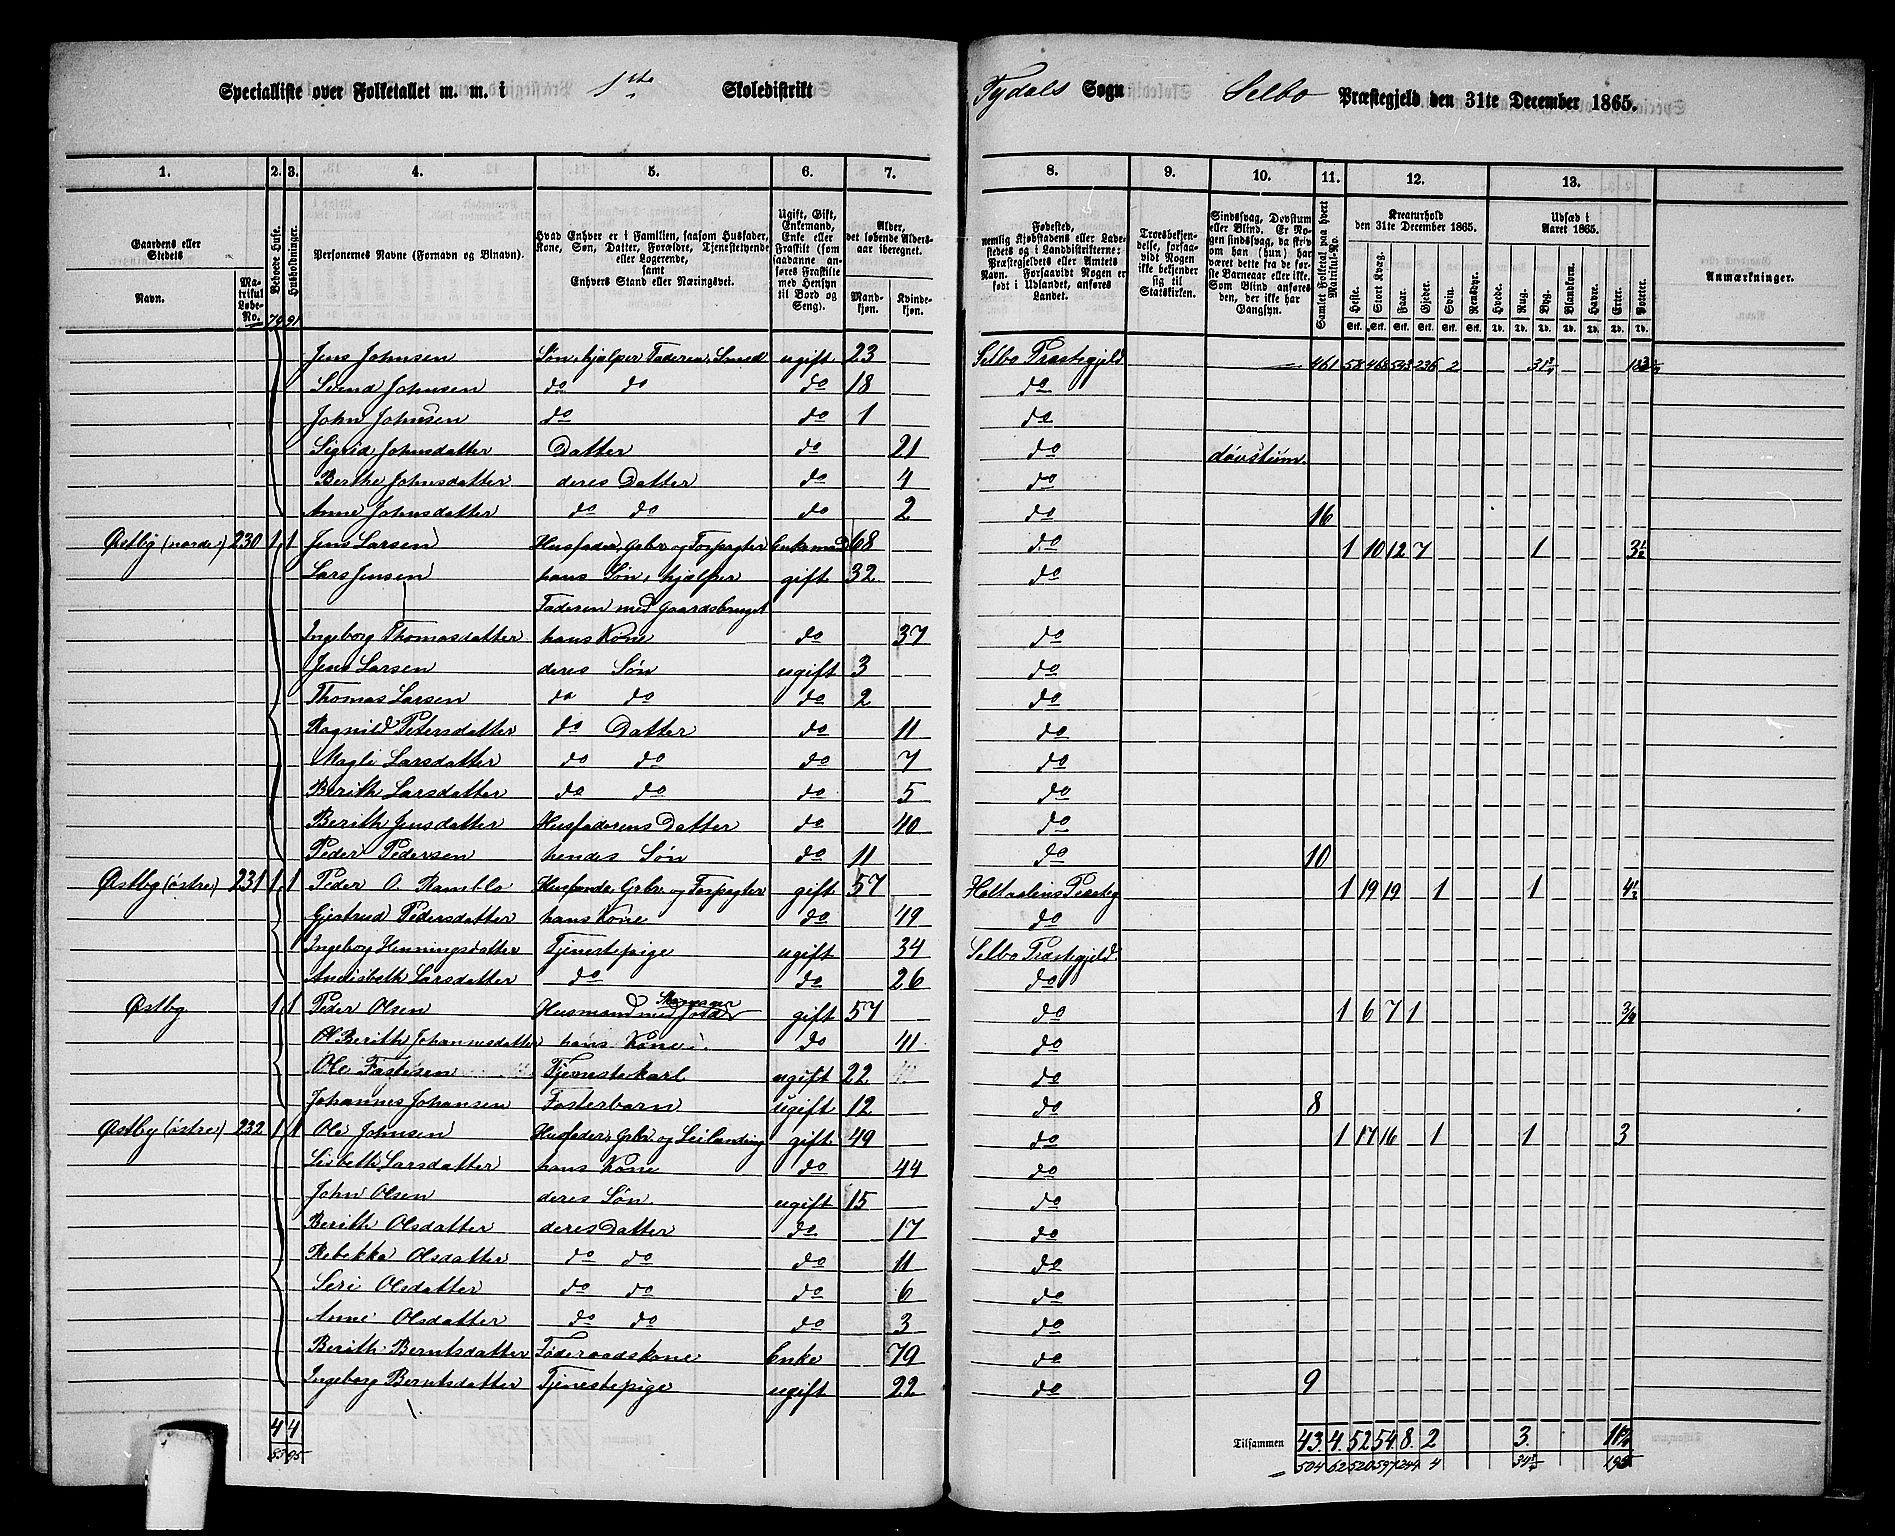 Specialliste over Folketallet m. m. i 1ste Skoledistrikt Tydals Sogn Selbo Præstegjeld den 31te December 1865.
1. 2. 3. 4. 5. 6. 7. 8. 9. 10. 11. 12. 13.
Gaardens eller Stedets
Navn. Matrikul Løbe-No.
Beboede Huse.
Husholdninger.
Personernes Navne (Fornavn og Tilnavn).
Hvad Enhver er i Familien, saasom Husfader, Kone, Søn, Datter, Forældre, Tjenestetyende eller Logerende,
samt
Enhvers Stand eller Næringsvei.
Ugift, Gift, Enkemand, Enke eller Fraskilt (som saadanne anføres Fraskilte med Hensyn til Bord og Seng).
Alder, det løbende Aldersaar iberegnet.
Mandkjøn. Kvindekjøn.
Fødested, nemlig Kjøbstadens eller Ladestedets og i Landdistrikterne: Præstegjeldets eller Amtets Navn. Forsaavidt Nogen er født i Udlandet, anføres Landet.
Troesbekjendelse, forsaavidt Nogen ikke bekjender sig til Statskirken.
Sindssvag, Døvstum eller Blind. Er Nogen sindssvag, da skrives om han (hun) har været dette fra de første Barneaar eller ikke. Som Blind anføres den, der ikke har Gangsyn.
Samlet Folketal paa hvert Matrikul-No.
Kreaturhold den 31te December 1865.
Heste. Stort Kvæg. Faar. Gjeder. Svin. Rensdyr.
Udsæd i Aaret 1865.
Hvede. Rug. Byg. Blandkorn. Havre. Erter. Poteter.
Anmærkninger.
79 91
Jens Johnsen Søn, hjælper Faderen, Smed ugift 23 Selbo Præstegjeld 461 58 468 543 236 2
Svend Johnsen do do do 18 do
John Johnsen do do 1 do
Sigrid Johnsdatter Datter do 21 do døvstum.
Berthe Johnsdatter deres Datter do 4 do
Anne Johnsdatter do do do 2 do 16
Østby (nordre) 230 1 1 Jens Larsen Husfader, Grbr. og Forpagter Enkemand 68 do 1 10 12 7 1 3½
Lars Jensen hans Søn, hjælper gift 32 do
Faderen med Gaardsbruget
Ingeborg Thomasdatter hans Kone do 37 do
Jens Larsen deres Søn ugift 3 do
Thomas Larsen do do do 2 do
Ragnild Petersdatter do Datter do 11 do
Magli Larsdatter do do do 7 do
Berith Larsdatter do do do 5 do
Berith Jensdatter Husfaderens Datter do 40 do
Peder Pedersen hendes Søn do 11 do 10
Østby (østre) 231 1 1 Peder O. Ramblo Husfader, Grbr. og Forpagter gift 57 Holtaalens Præstg 1 19 19 1 1 4½
Gjertrud Pedersdatter hans Kone do 49 do
Ingeborg Henningsdatter Tjenestepige ugift 34 Selbo Præstegjeld
Andisbeth Larsdatter do do 26 do
Østby 1 1 Peder Olsen Husmand med Jord gift 57 do 1 6 7 1
Berith Johannesdatter hans Kone do 41 do
Ole Fastesen Tjenestekarl ugift 22 do
Johannes Johansen Fosterbarn ugift 12 do 8
Østby (østre) 232 1 1 Ole Johnsen Husfader, Grbr. og Leilænding gift 49 do 1 17 16 1 1 3
Lisbeth Larsdatter hans Kone do 44 do
John Olsen deres Søn ugift 15 do
Berith Olsdatter deres Datter do 17 do
Rebekka Olsdatter do do do 11 do
Seri Olsdatter do do do 6 do
Anne Olsdatter do do do 3 do
Berith Berntsdatter Føderaadskone Enke 79 do
Ingeborg Berntsdatter Tjenestepige ugift 22 do 9
4 4 Tilsammen 43. 4. 52 54. 8. 2 3.
83 95 504 62 520 597 244 4